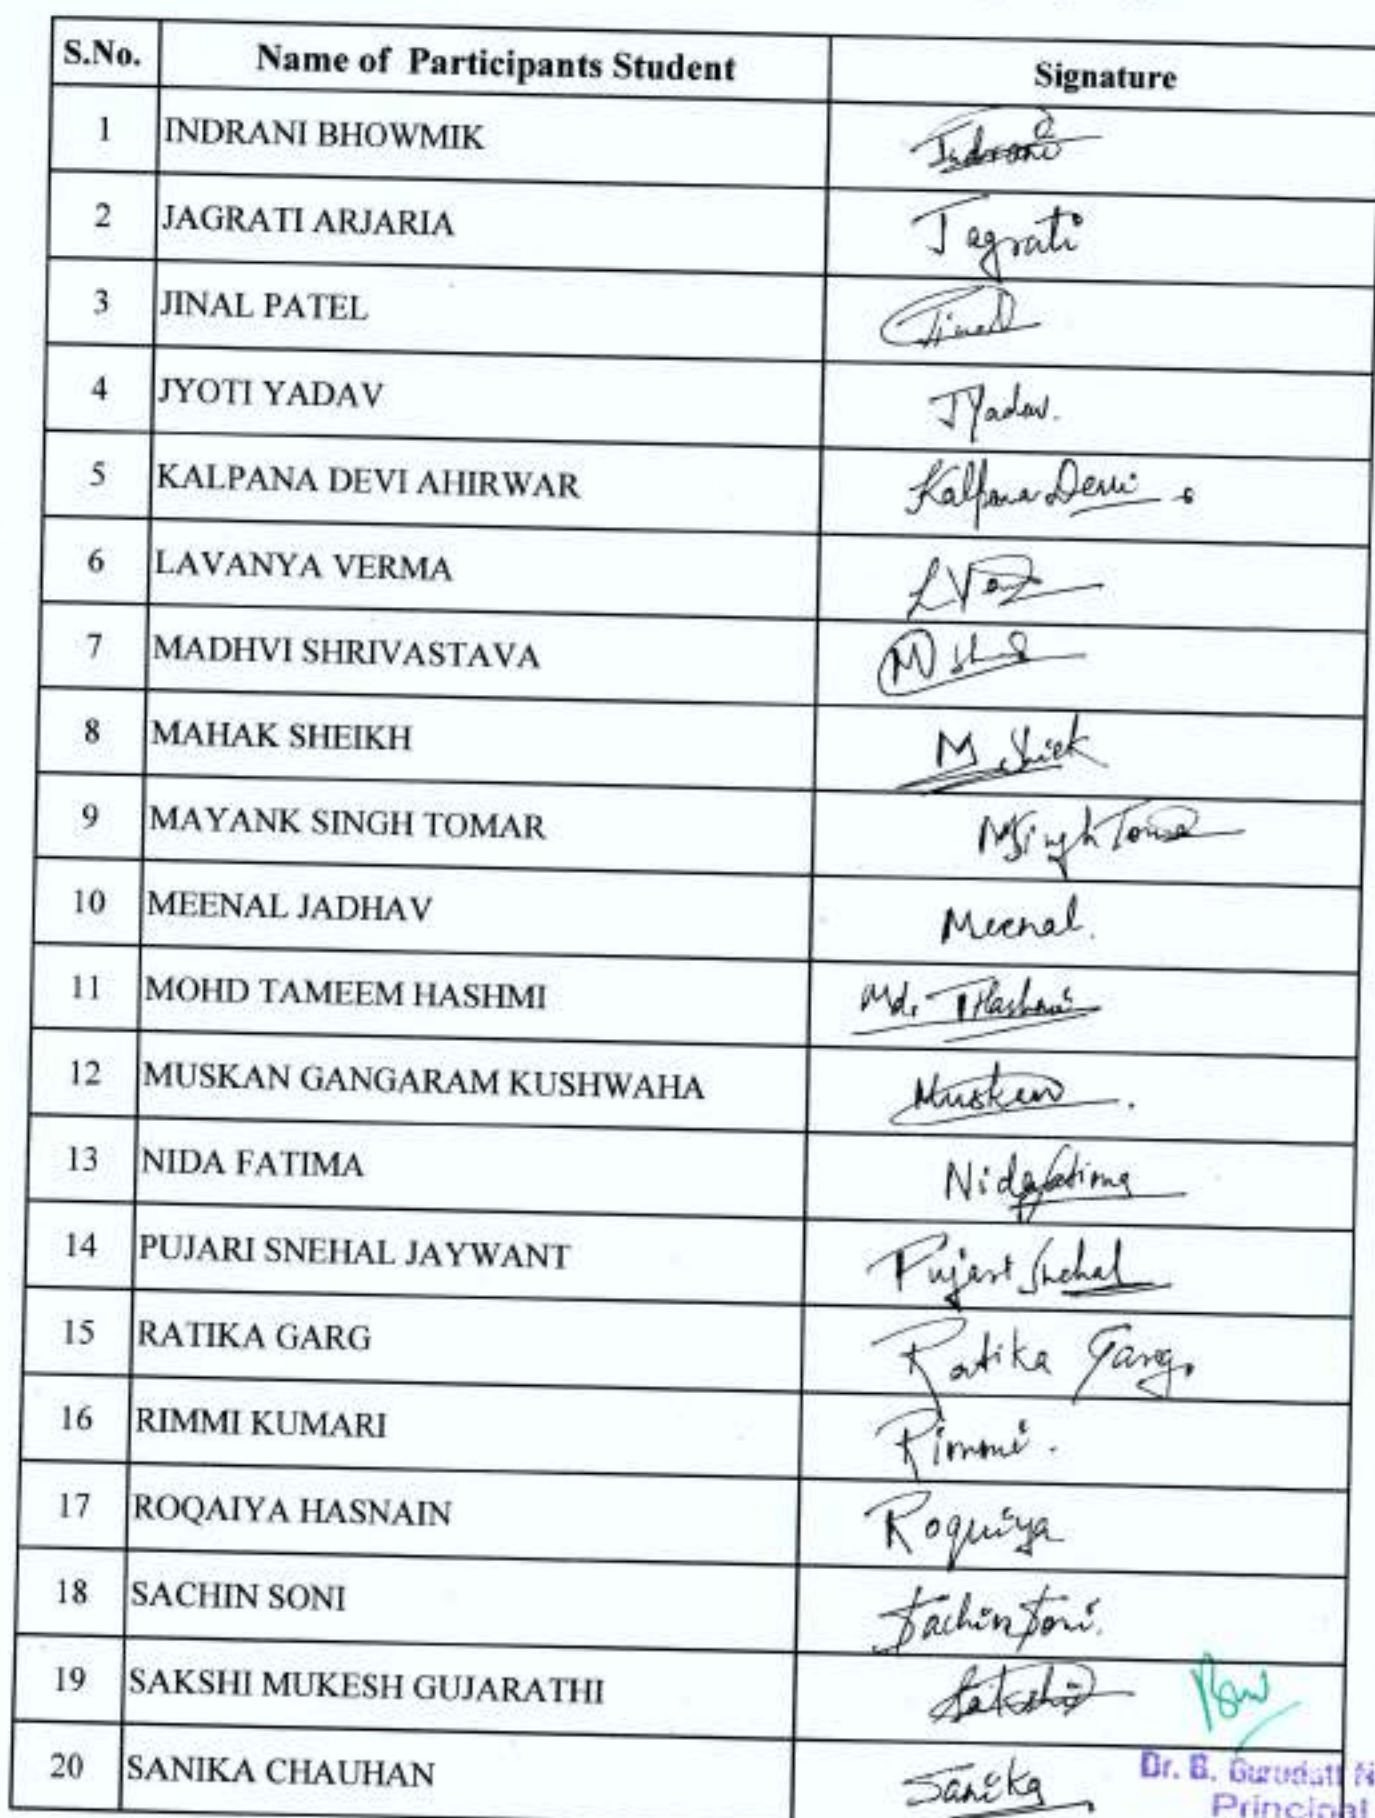 S.No. Name of Participants Student Signature
1 INDRANI BHOWMIK Indrani
2 JAGRATI ARJARIA Jagrati
3 JINAL PATEL Jinal
4 JYOTI YADAV JYadav.
5 KALPANA DEVI AHIRWAR Kalpana Devi
6 LAVANYA VERMA
7 MADHVI SHRIVASTAVA
8 MAHAK SHEIKH M Shiek
9 MAYANK SINGH TOMAR MSingh Tomar
10 MEENAL JADHAV Meenal.
11 MOHD TAMEEM HASHMI Md. THashmi
12 MUSKAN GANGARAM KUSHWAHA Muskan
13 NIDA FATIMA Nida fatima
14 PUJARI SNEHAL JAYWANT Pujari Snehal
15 RATIKA GARG Ratika Garg.
16 RIMMI KUMARI Rimmi.
17 ROQAIYA HASNAIN Roquiya
18 SACHIN SONI Sachin Soni.
19 SAKSHI MUKESH GUJARATHI Sakshi
20 SANIKA CHAUHAN Sanika
Dr. B. Gurudatt
Principal